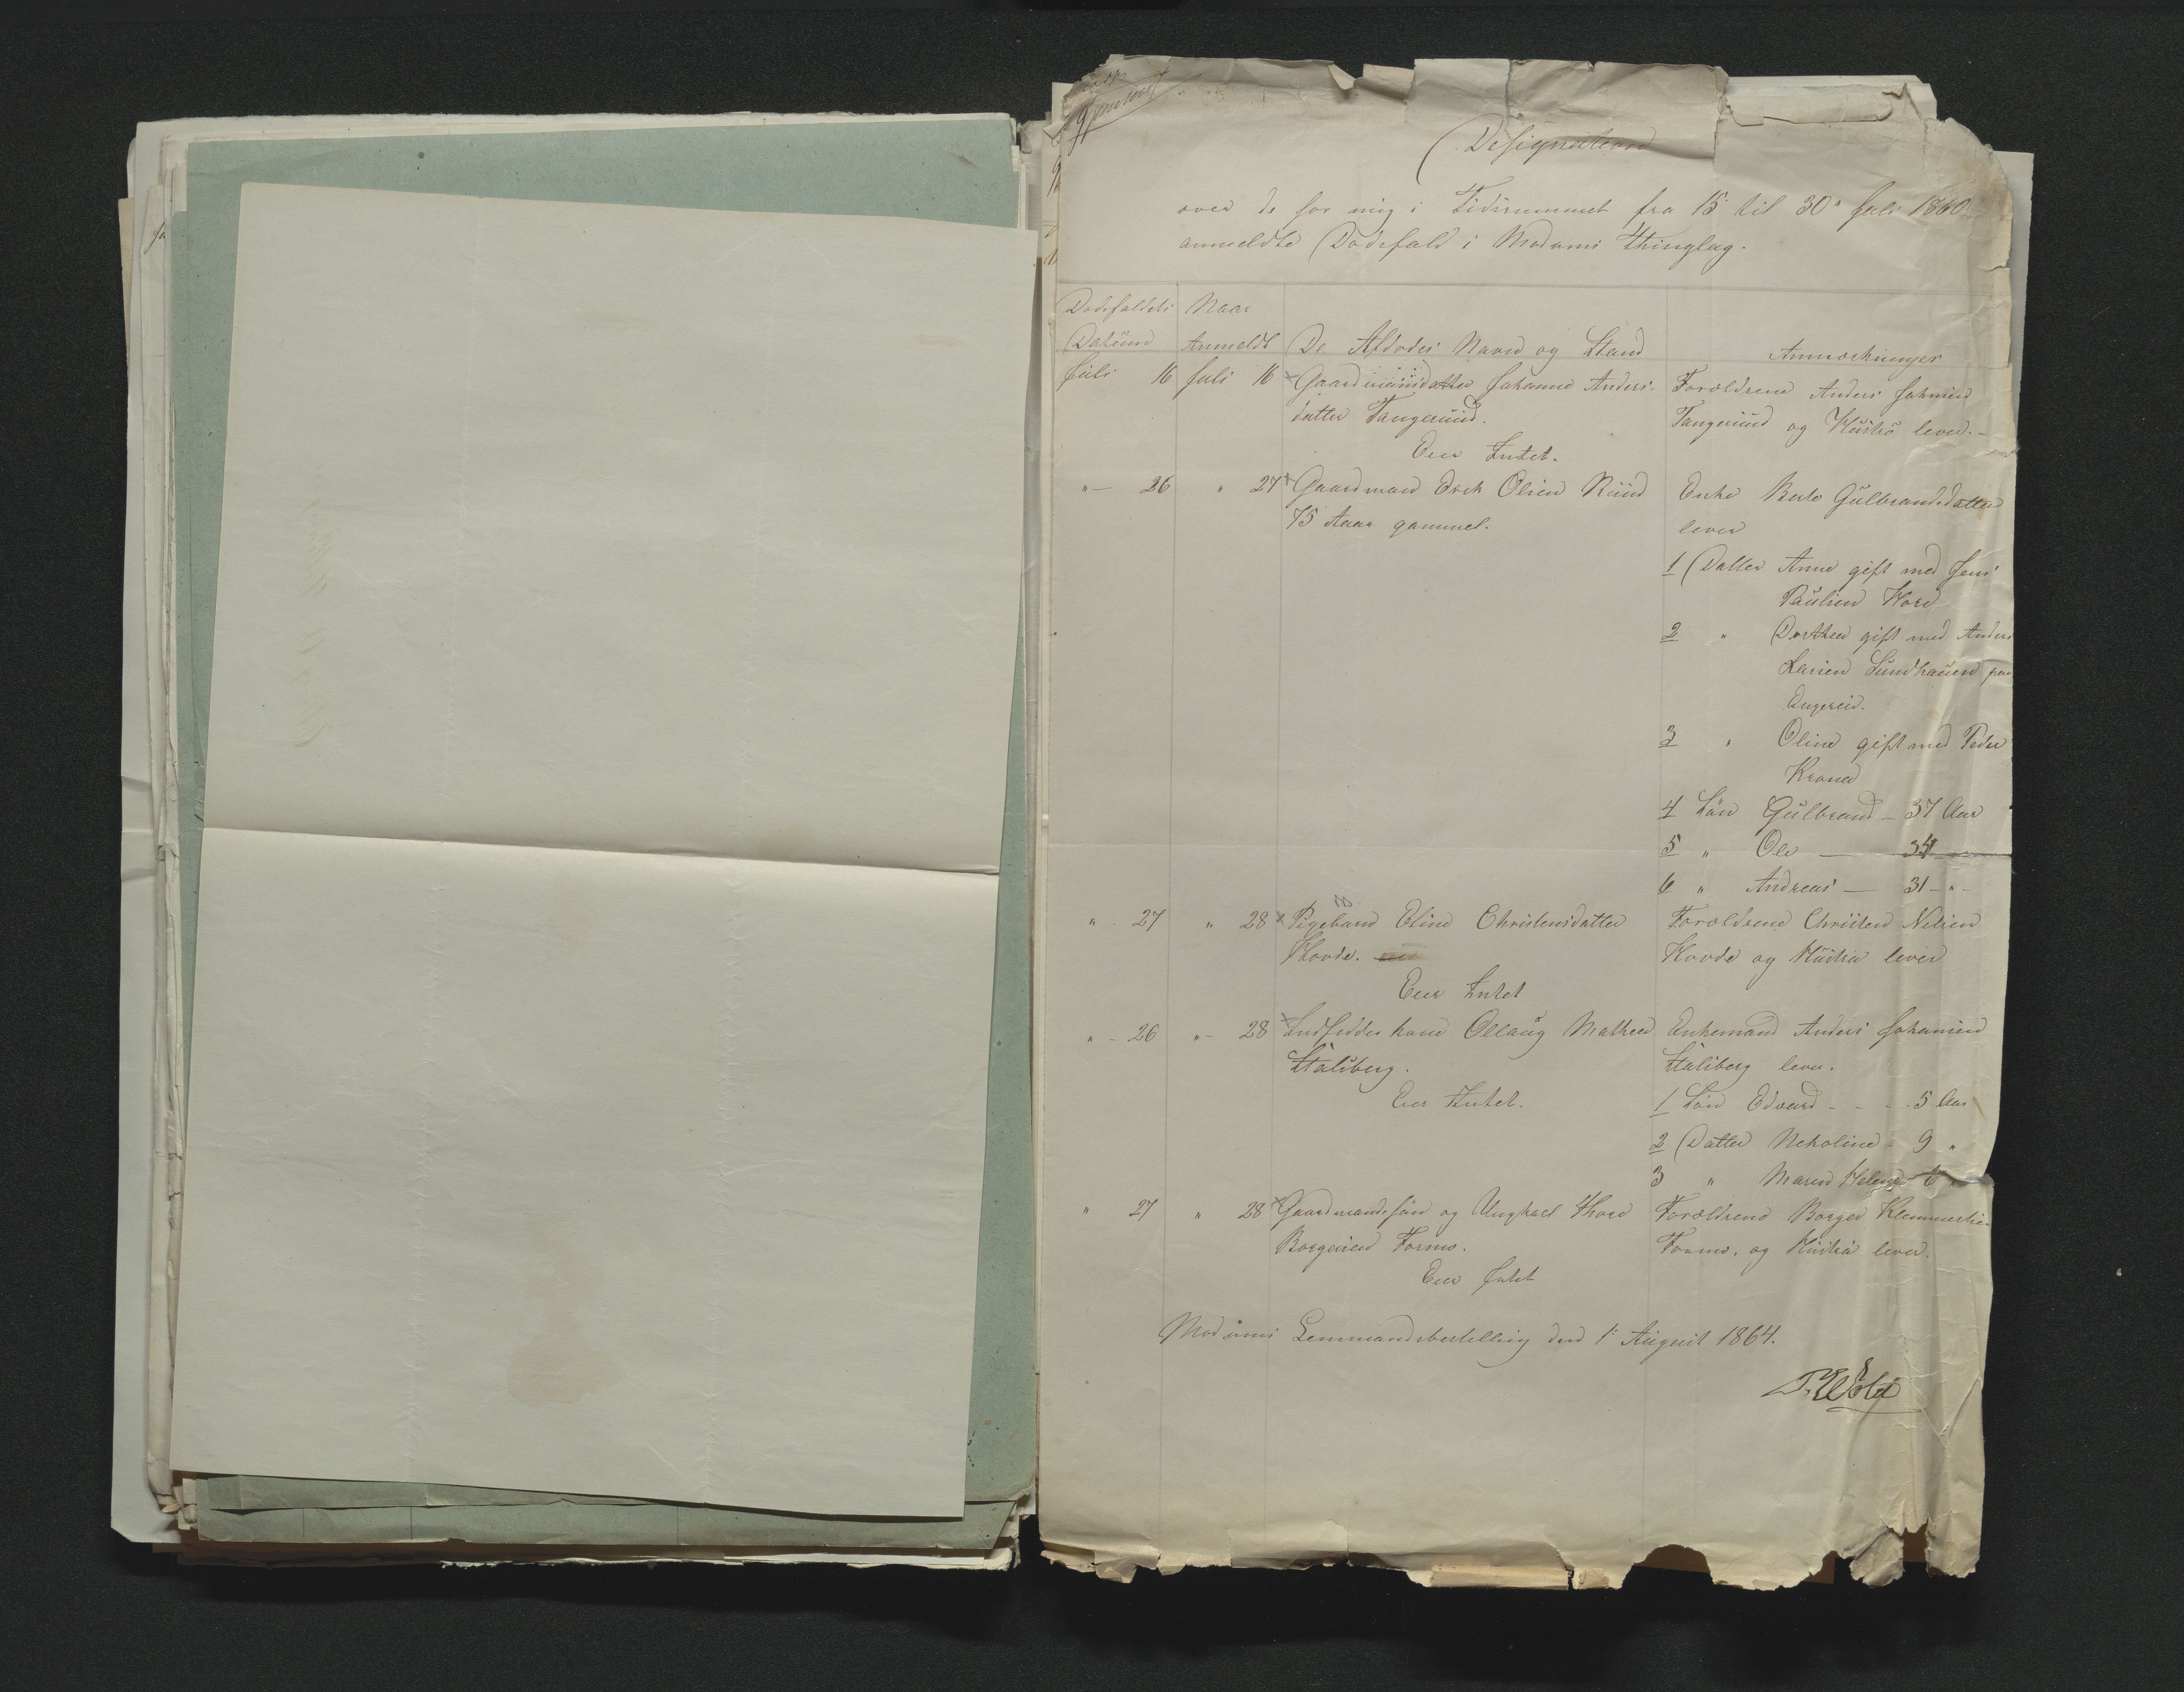 Designation
over de for mig i Tidsrummet fra 15 til 30 Juli 1860
anmeldte Dødsfald i Modums Thinglag.
Dødsfaldets Datum
Naar Anmeldt
De Afdødes Navn og Stand
Anmærkninger
Juli 16 Juli 16 Gaardmandsdatter Johanne Anders-
datter Tangerud.
Eier Intet.
Forældrene Anders Johnsen
Tangerud og Hustro lever.-
"- 26 " 27 Gaardmand Erik Olsen Ruud
75 Aar gammel.
Enke Berte Gulbrandsdatter
lever
1 Datter Anne gift med Jens
Paulsen
2 " Dorthea gift med Anders
Larsen Sundhaugen paa
3 " Oline gift med Peder
4 Søn Gulbrand - 37 Aar
5 " Ole — 34
6 " Andreas — 31 - " -
" 27 " 28 Pigebarn Eline Christensdatter
Hovde.
Eier Intet
Forældrene Christen Nilsen
Hovde og Hustru lever
" - 26 "- 28 Indsidderkone Ollaug Mathea
Stalsberg.
Eier Intet.
Enkemand Anders Johansen
Stalsberg lever.
1 Søn Edvard - - - 5 Aar
2 Datter Nekoline - 9 "
3 " Maren Helene 6 "
" 27 " 28 Gaardmandssøn og Ungkarl Thord
Borgersen Formo.
Eier Intet
Forældrene Borger Klemmetsen
Formo, og Hustru lever.
Modums Lensmandsbestilling den 1 August 1864.